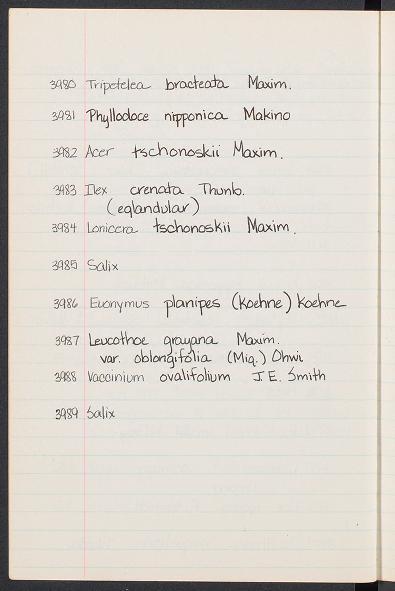 3980 Tripetelea bracteata Maxim.
3981 Phyllodoce nipponica Makino
3982 Acer tschonoskii Maxim.
3983 Ilex crenata Thunb.
(eglandular)
3984 Lonicera tschonoskii Maxim.
3985 Salix
3986 Euonymus planipes (Koehne) Koehne
3987 Leucothoe grayana Maxim.
var. oblongifolia (Miq.) Ohwi
3988 Vaccinium ovalifolium J.E. Smith
3989 Salix